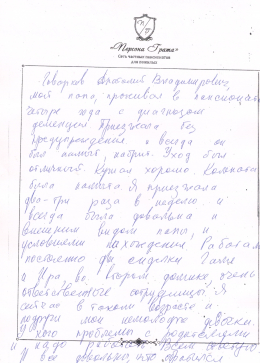 «Персона Грата»
Сеть частных пансионатов
для пожилых
Говорков Анатолий Владимирович,
мой папа, проживал в пансионате
четыре года с диагнозом
деменция. Приезжала без
предупреждения и всегда он
был памыт, накормлен. Уход был
отличный. Кушал хорошо. Комната
была памыта. Я приезжала
два-три раза в неделю и
всегда была довольна и
внешним видом папы, и
условиями нахождения. Работали
постоянно две сиделки Галя
и Ира во втором домике, очень
ответственные сотрудницы. Я
сейчас в таком возрасте и
подруги мои немолоды
У кого проблемы с родителями
и надо